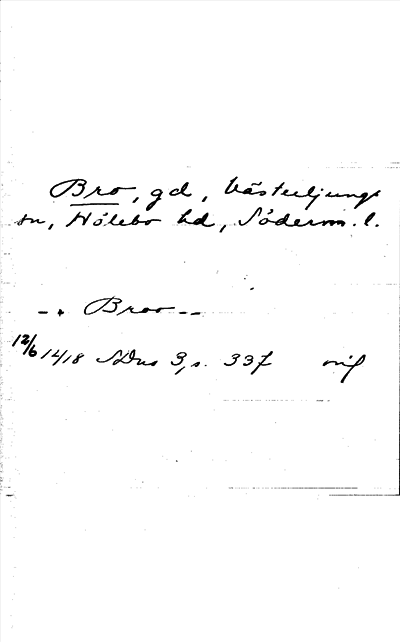 Bro, gd, Västerljungs
sn, Hölebo hd, Söderm. l.
- . Broo - -
12/6 1418 SDns 3, s. 337 orig